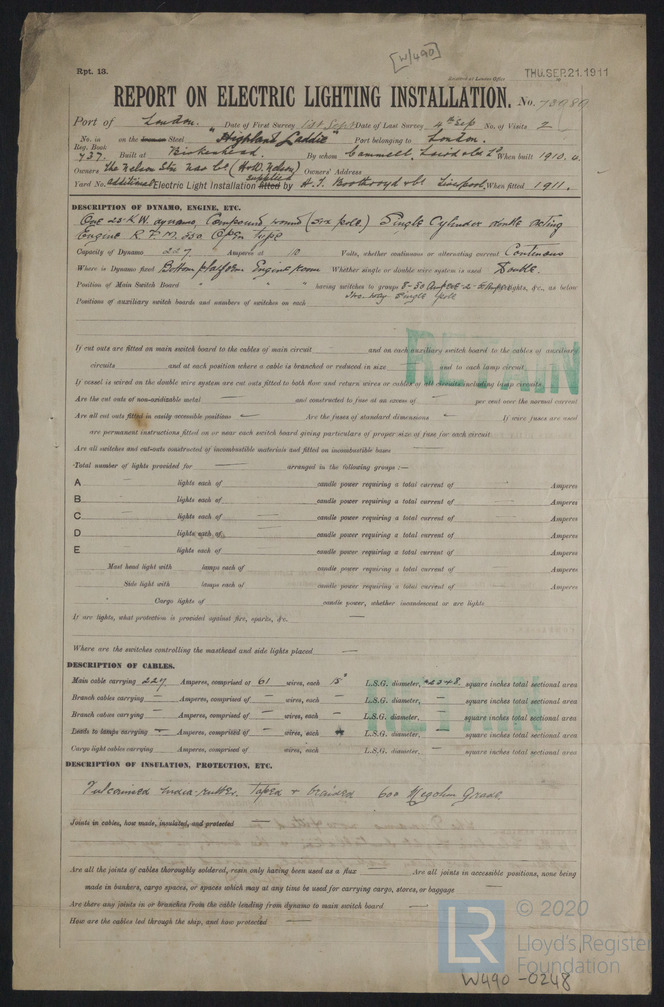 [W/490]
Rpt. 13.
Received at London Office THU. SEP. 21. 1911
REPORT ON ELECTRIC LIGHTING INSTALLATION. No.
Port of London. Date of First Survey 1st Sept Date of Last Survey 4th Sep No. of Visits 2
No. in Reg. Book 737. on the Iron or Steel "Highland Laddie" Port belonging to London.
Built at Birkenhead. By whom Cammell, Laird & Co Ld When built 1910. 4.
Owners The Nelson Stm Nav Co (H & W. Nelson) Owners' Address
Yard No. additional Electric Light Installation fitted supplied by H. T. Boothroyd & Co Liverpool, When fitted 1911.
DESCRIPTION OF DYNAMO, ENGINE, ETC.
One 25 K.W. dynamo, Compound wound (six pole.) Single Cylinder double acting
Engine R.P.M. 350 Open type
Capacity of Dynamo 227 Amperes at 110 Volts, whether continuous or alternating current Continuous
Where is Dynamo fixed Bottom platform Engine room Whether single or double wire system is used Double.
Position of Main Switch Board " " " having switches to groups of lights, &c., as below
Positions of auxiliary switch boards and numbers of switches on each two way single pole
If cut outs are fitted on main switch board to the cables of main circuit and on each auxiliary switch board to the cables of auxiliary
circuits and at each position where a cable is branched or reduced in size and to each lamp circuit
If vessel is wired on the double wire system are cut outs fitted to both flow and return wires or cables of all circuits including lamp circuits
Are the cut outs of non-oxidizable metal — and constructed to fuse at an excess of — per cent over the normal current
Are all cut outs fitted in easily accessible positions — Are the fuses of standard dimensions — If wire fuses are used
are permanent instructions fitted on or near each switch board giving particulars of proper size of fuse for each circuit
Are all switches and cut-outs constructed of incombustible materials and fitted on incombustible bases —
Total number of lights provided for — arranged in the following groups :—
A lights each of candle power requiring a total current of Amperes
B lights each of candle power requiring a total current of Amperes
C lights each of candle power requiring a total current of Amperes
D lights each of candle power requiring a total current of Amperes
E lights each of candle power requiring a total current of Amperes
Mast head light with lamps each of candle power requiring a total current of Amperes
Side light with lamps each of candle power requiring a total current of Amperes
Cargo lights of candle power, whether incandescent or arc lights
If arc lights, what protection is provided against fire, sparks, &c. —
Where are the switches controlling the masthead and side lights placed —
RETAIN
DESCRIPTION OF CABLES.
Main cable carrying 227 Amperes, comprised of 61 wires, each 15 L.S.G. diameter, .2348 square inches total sectional area
Branch cables carrying — Amperes, comprised of — wires, each — L.S.G. diameter, — square inches total sectional area
Branch cables carrying — Amperes, comprised of — wires, each — L.S.G. diameter, — square inches total sectional area
Leads to lamps carrying — Amperes, comprised of — wires, each L.S.G. diameter, — square inches total sectional area
Cargo light cables carrying Amperes, comprised of — wires, each L.S.G. diameter, — square inches total sectional area
RETAIN
DESCRIPTION OF INSULATION, PROTECTION, ETC.
Vulcanised India-rubber. Taped & braided 600 Megohm Grade.
Joints in cables, how made, insulated, and protected —
Are all the joints of cables thoroughly soldered, resin only having been used as a flux — Are all joints in accessible positions, none being
made in bunkers, cargo spaces, or spaces which may at any time be used for carrying cargo, stores, or baggage —
Are there any joints in or branches from the cable leading from dynamo to main switch board —
How are the cables led through the ship, and how protected —
LR © 2020
Lloyd's Register
Foundation
W490-0248